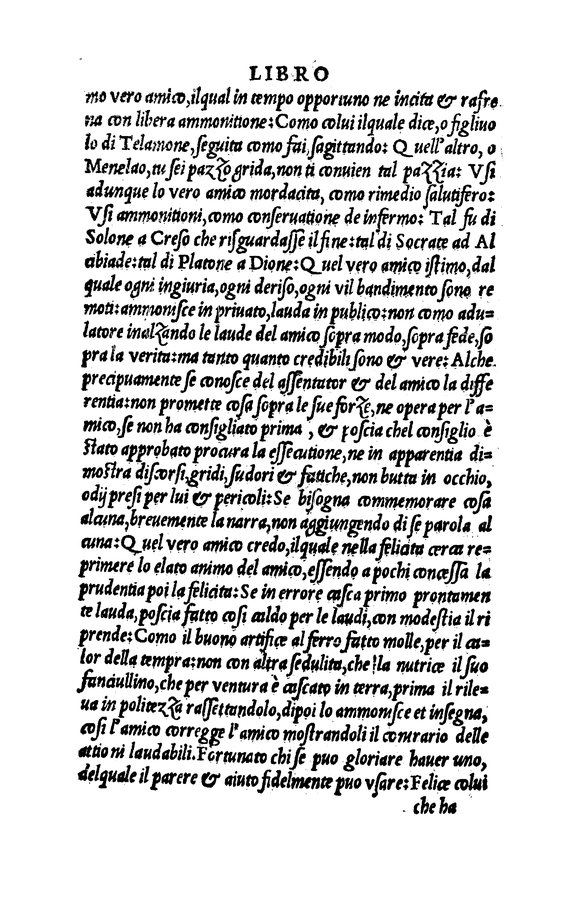 LIBRO
mo vero amico, ilqual in tempo opportuno ne incita & rafre
na con libera ammonitione: Como colui ilquale dice, o figliuo
lo di Telamone, ſeguita como fai, ſagittando: Quell'altro, o
Menelao, tu ſei pazzo grida, non ti conuien tal pazzia: Vſi
adunque lo vero amico mordacita, como rimedio ſalutifero:
Vſi ammonitioni, como conſeruatione de infermo: Tal fu di
Solone a Creſo che riſguardaſſe il fine: tal di Socrate ad Al
cibiade: tal di Platone a Dione: Quel vero amico iſtimo, dal
quale ogni ingiuria, ogni deriſo, ogni vil bandimento ſono re
moti: ammoniſce in priuato, lauda in publico: non como adu=
latore inalzando le laude del amico ſopra modo, ſopra fede, ſo
pra la verita: ma tanto quanto credibili ſono & vere: Alche
precipuamente ſe conoſce del aſſentator & del amico la diffe
rentia: non promette coſa ſopra le ſue forze, ne opera per l'a=
mico, ſe non ha conſigliato prima, & poſcia chel conſiglio è
ſtato approbato procura la eſſecutione, ne in apparentia di=
moſtra diſcorſi, gridi, ſudori & fatiche, non butta in occhio,
odij preſi per lui & pericoli: Se biſogna commemorare coſa
alcuna, breuemente la narra, non aggiungendo di ſe parola al
cuna: Quel vero amico credo, ilquale nella felicita cerca re=
primere lo elato animo del amico, eſſendo a pochi conceſſa la
prudentia poi la felicita: Se in errore caſca primo prontamen
te lauda, poſcia fatto coſi caldo per le laudi, con modeſtia il ri
prende: Como il buono artifice al ferro fatto molle, per il ca=
lor della tempra: non con altra ſedulita, che la nutrice il ſuo
fanciullino, che per ventura è caſcato in terra, prima il rile=
ua in politezza raſſettandolo, dipoi lo ammoniſce et inſegna,
coſi l'amico corregge l'amico moſtrandoli il contrario delle
attioni laudabili. Fortunato chi ſe puo gloriare hauer uno,
delquale il parere & aiuto fidelmente puo vſare: Felice colui
che ha